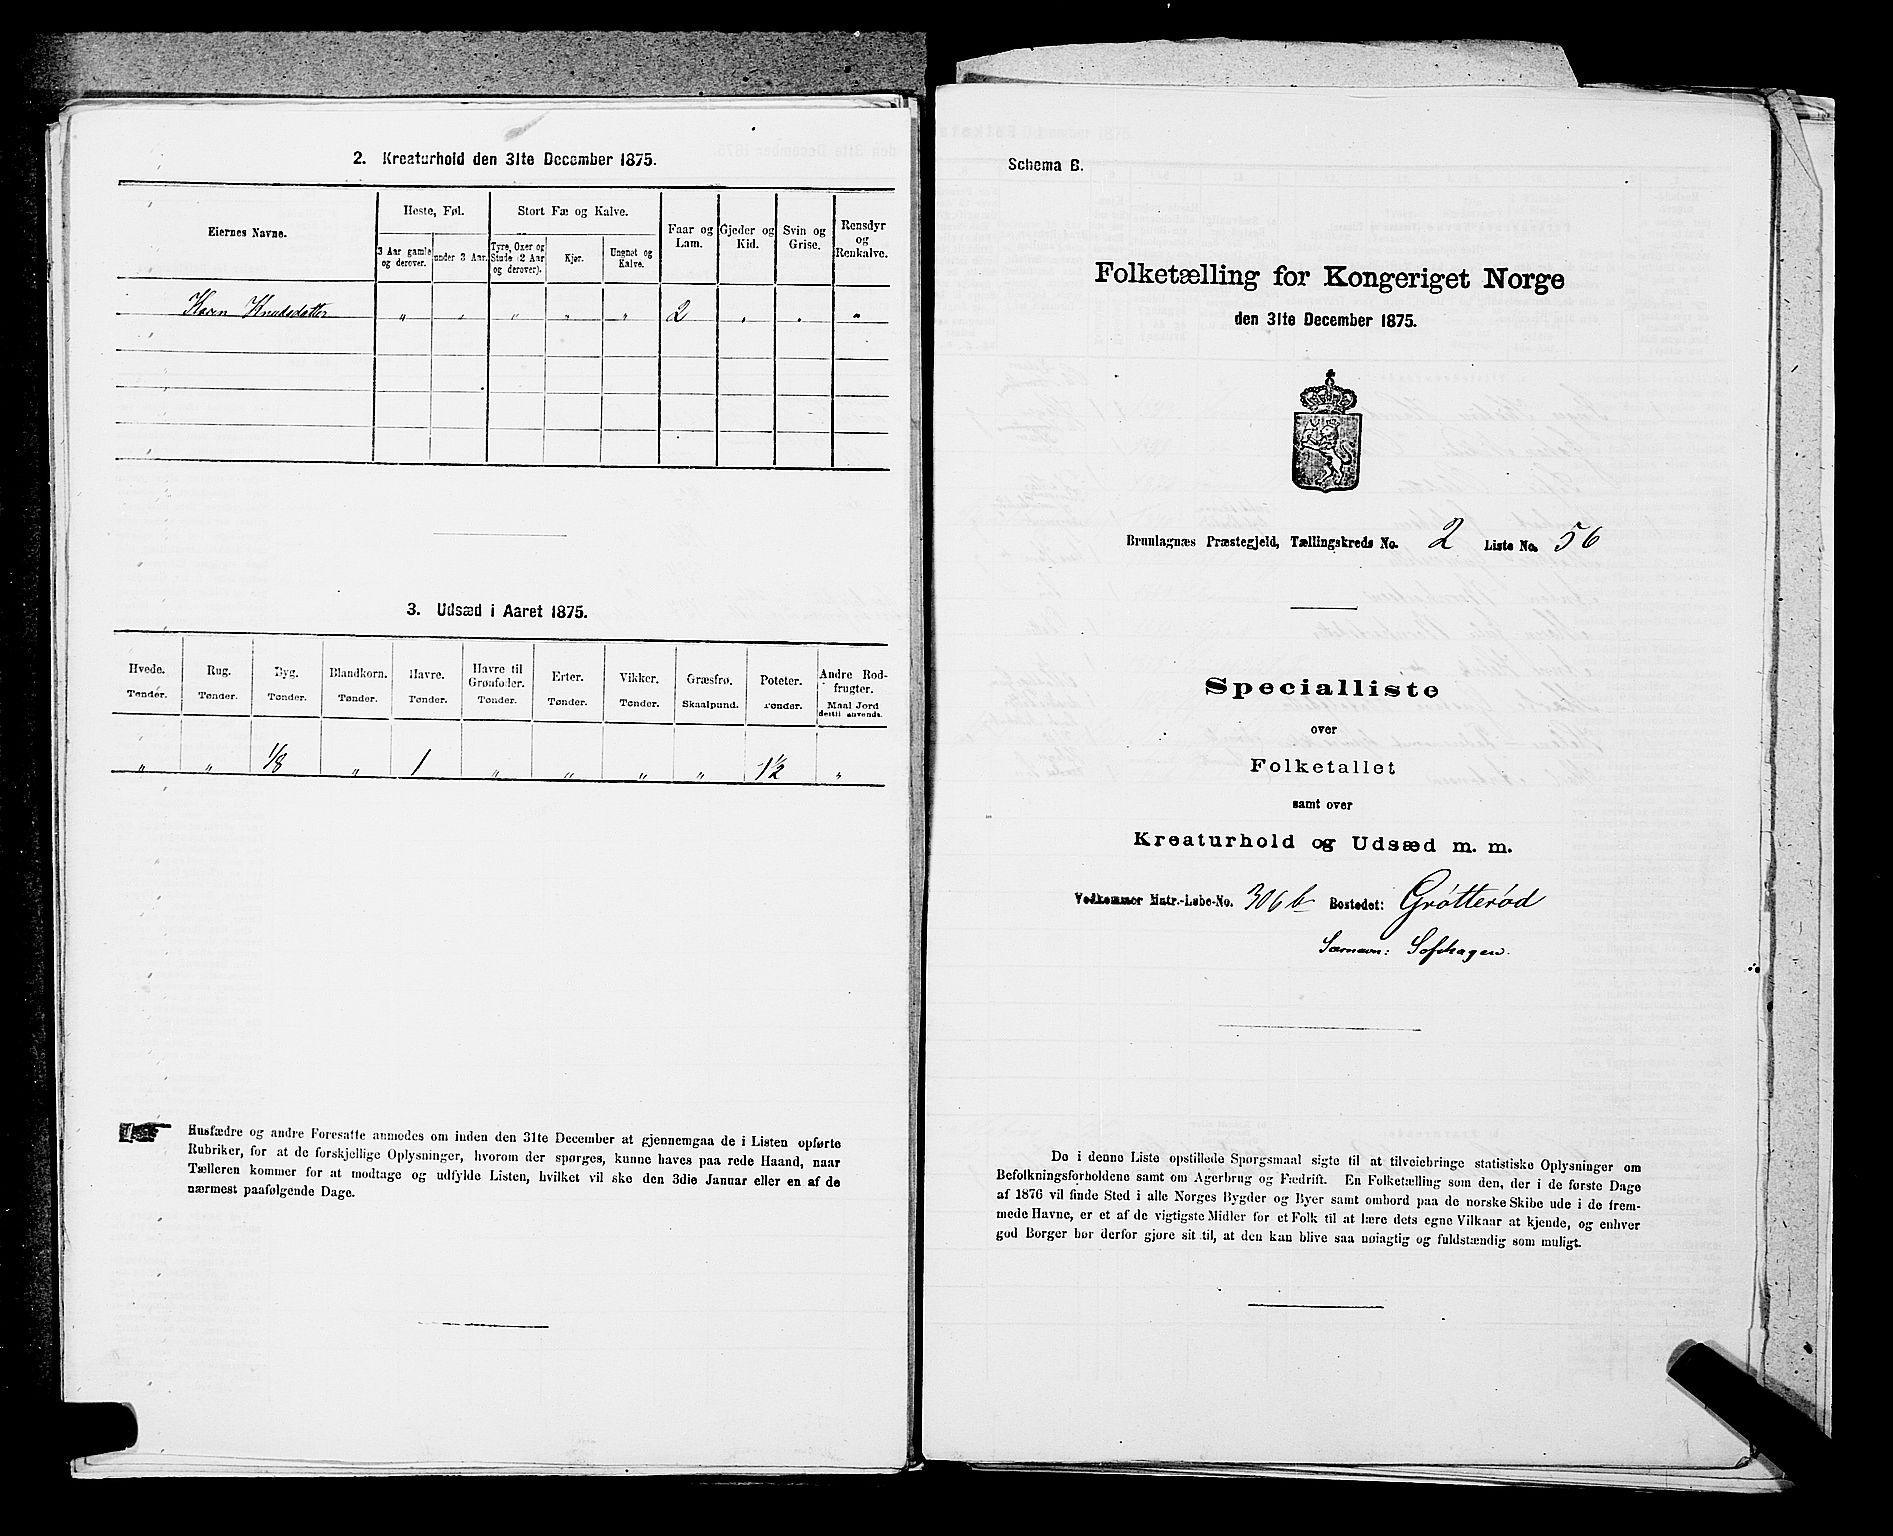 2. Kreaturhold den 31te December 1875.
Eiernes Navne.
Heste, Føl.
3 Aar gamle og derover.
under 3 Aar.
Stort Fæ og Kalve.
Tyre, Oxer og Stude (2 Aar og derover).
Kjør.
Ungnøt og Kalve.
Faar og Lam.
Gjeder og Kid.
Svin og Grise.
Rensdyr og Renkalve.
Karen Knudsdatter " " " " " 2 " " "
3. Udsæd i Aaret 1875.
Hvede. Tønder.
Rug. Tønder.
Byg. Tønder.
Blandkorn. Tønder.
Havre. Tønder.
Havre til Grønfoder. Tønder.
Erter. Tønder.
Vikker. Tønder.
Græsfrø. Skaalpund.
Poteter. Tønder.
Andre Rodfrugter. Maal Jord dertil anvendt.
" " 1/8 " 1 " " " " 1½ "
Husfædre og andre Foresatte anmodes om inden den 31te December at gjennemgaa de i Listen opførte
Rubriker, for at de forskjellige Oplysninger, hvorom der spørges, kunne haves paa rede Haand, naar
Tælleren kommer for at modtage og udfylde Listen, hvilket vil ske den 3die Januar eller en af de
nærmest paafølgende Dage.
Schema B.
Folketælling for Kongeriget Norge
den 31te December 1875.
Brunlagnæs Præstegjeld, Tællingskreds No. 2 Liste No. 56
Specialliste
over
Folketallet
samt over
Kreaturhold og Udsæd m. m.
Vedkommer Matr.-Løbe-No. 306 b Bostedet: Grótterød
Særnavn: Sofihagen.
De i denne Liste opstillede Spørgsmaal sigte til at tilveiebringe statistiske Oplysninger om
Befolkningsforholdene samt om Agerbrug og Fædrift. En Folketælling som den, der i de første Dage
af 1876 vil finde Sted i alle Norges Bygder og Byer samt ombord paa de norske Skibe ude i de frem-
mede Havne, er et af de vigtigste Midler for et Folk til at lære dets egne Vilkaar at kjende, og enhver
god Borger bør derfor gjøre sit til, at den kan blive saa nøiagtig og fuldstændig som muligt.